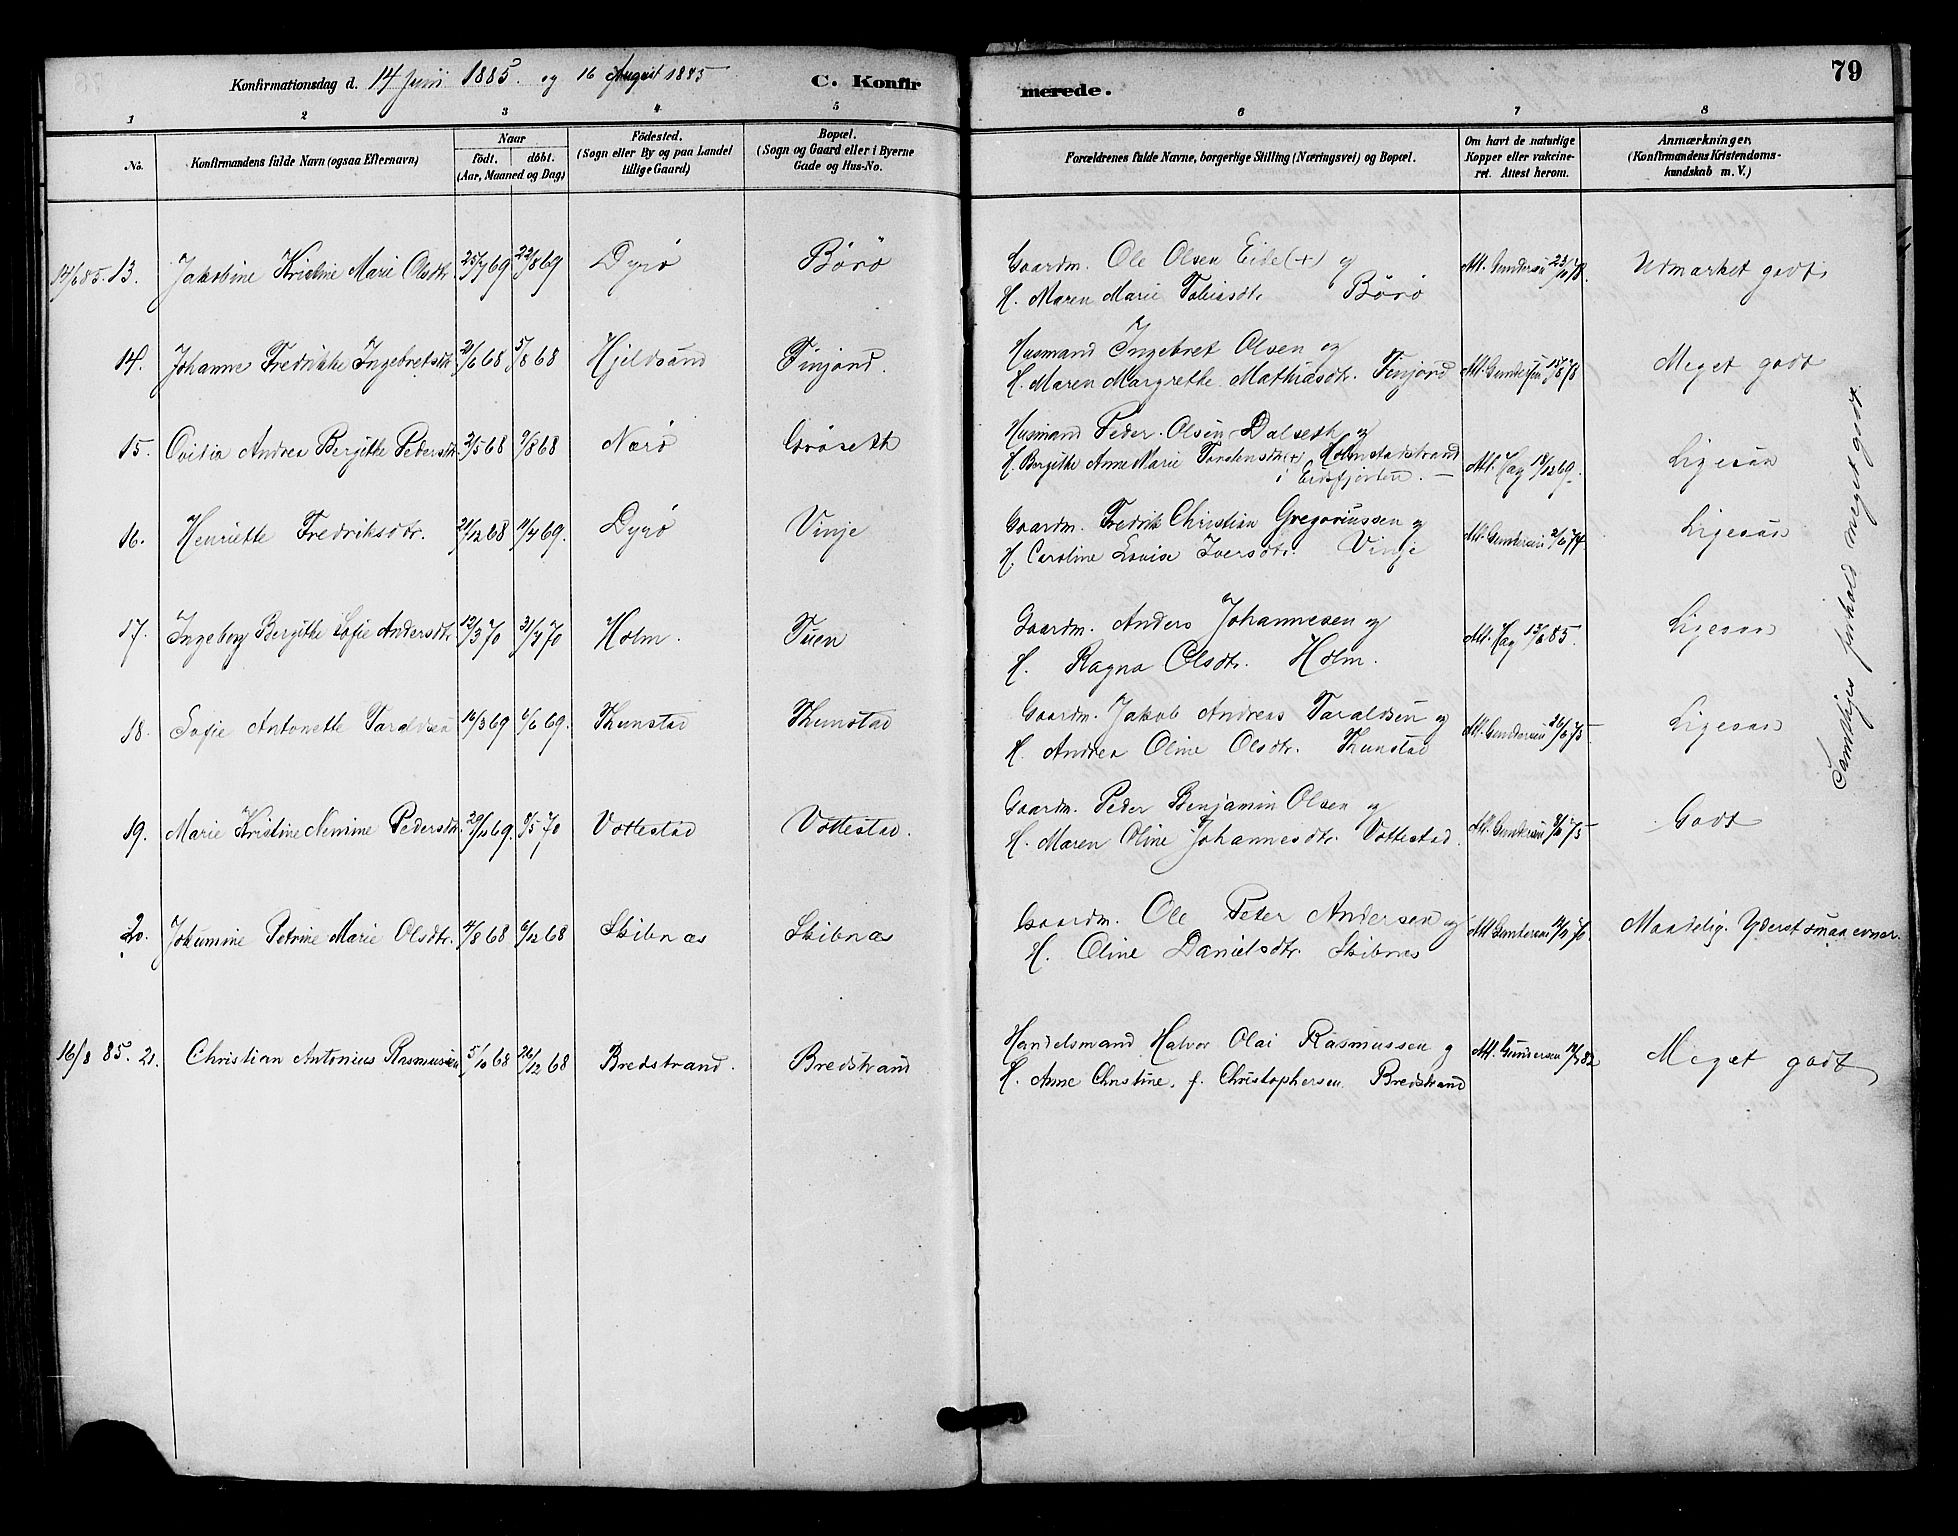 Konfirmationsdag d. 14 Juni 1885 og 16 August 1885 C. Konfirmerede. 79
1 2 3 4 5 6 7 8
No. Konfirmandens fulde Navn (ogsaa Efternavn) Naar födt. döbt. (Aar, Maaned og Dag) Födested. (Sogn eller By og paa Landet tillige Gaard) Bopæl. (Sogn og Gaard eller i Byerne Gade og Hus-No. Forældrenes fulde Navne, borgerlige Stilling (Næringsvei) og Bopæl. Om havt de naturlige Kopper eller vakcineret. Attest herom. Anmærkninger. (Konfirmandens Kristendomskundskab m. V.)
14/6 85. 13. Jakobine Kristine Marie Olsdtr. 25/7 69 22/8 69 Dyrö Börö Gaardm. Ole Olsen Eide (+) og Att. Gundersen Udmærket godt
H. Maren Marie Tobiasdtr. Börö
14. Johanne Fredrikke Ingebretsdtr. 2/6 68 5/8 68 Hjeldsund Finjord. Husmand Ingebret Olsen og Att. Gundersen Meget godt
H. Maren Margrethe Mathiasdtr. Finjord
15. Andrea Bergitte Pedersdtr. 2/5 68 9/8 68 Nærö Gröseth Husmand Peder Olsen Dalseth og Att. Hag 18/12 69. Ligesaa
H. Bergitte Anne Marie Holmstadstrand
i Eidsfjorden. —
16. Henriette Fredriksdtr. 21/12 68 11/4 69. Dyrö Vinje Gaardm. Fredrik Christian Gregoriussen og Att. Gundersen Ligesaa
H. Caroline Lovise Iversdtr. Vinje
17. Ingeborg Bergitte Sofie Andersdtr. 12/3 70 31/7 70 Holm. Tuen Gaardm. Anders Johannesen og Att. Hag 13/6 85. Ligesaa
H. Ragna Olsdtr. Holm.
18. Sofie Antonette Taraldsen 16/3 69 6/6 69. Kunstad Kunstad Gaardm. Jakob Andreas Taraldsen og Att. Gundersen 26/6 75 Ligesaa
H. Andrea Oline Olsdtr. Kunstad
19. Marie Kristine Nemine Pedersdtr. 29/11 69. 8/5 70 Vottestad Vottestad. Gaardm. Peder Benjamin Olsen og Att. Gundersen Godt
H. Maren Oline Johannesdtr. Vottestad.
20. Johannine Petrine Marie Olsdtr. 4/8 68 6/12 68 Skibnæs Skibnæs Gaardm. Ole Peter Andersen og Att. Gundersen Maadelig. Yderst smaa evner.
H. Oline Danielsdtr. Skibnæs
16/8 85. 21. Christian Antonius Rasmussen 5/10 68 26/12 68 Bredstrand. Bredstrand Handelsmand Halvor Olai Rasmussen og Att. Gundersen Meget godt
H. Anne Christine, f. Christophersen Bredstrand
Samtliges forhold meget godt.